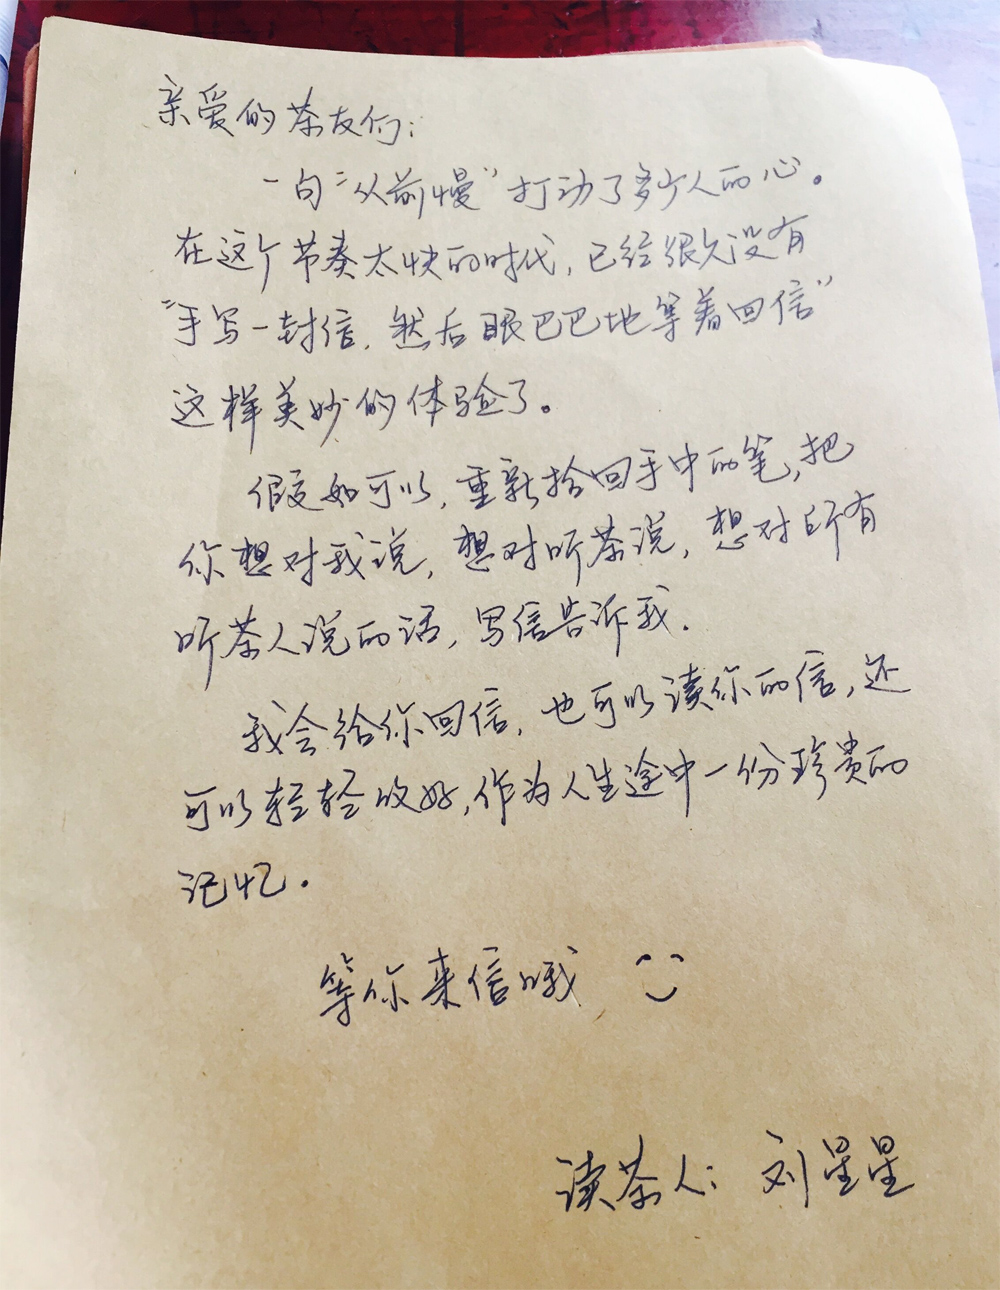 亲爱的茶友们：
一句“从前慢”打动了多少人的心。
在这个节奏太快的时代，已经很久没有
“手写一封信，然后眼巴巴地等着回信”
这样美妙的体验了。
假如可以，重新拾回手中的笔，把
你想对我说，想对听茶说，想对所有
听茶人说的话，写信告诉我.
我会给你回信，也可以读你的信，还
可以轻轻收好，作为人生途中一份珍贵的
记忆.
等你来信哦
读茶人：刘星星